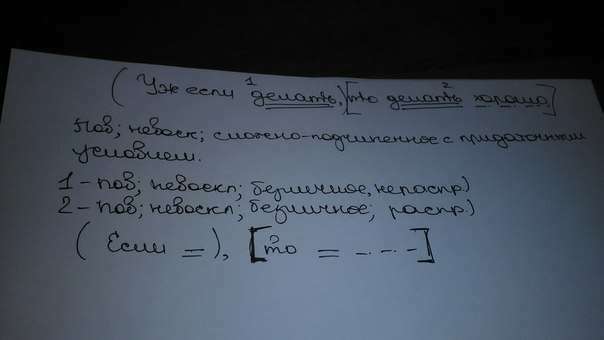 1 2
(Уже если делать,)[то делать хорошо]
Пов; невоск; сложно-подчиненное с придаточным
условием.
1 - пов; невоскл; безличное, нераспр.)
2 - пов; невоскл; безличное; распр.)
(Если =), [то = -.-.-]